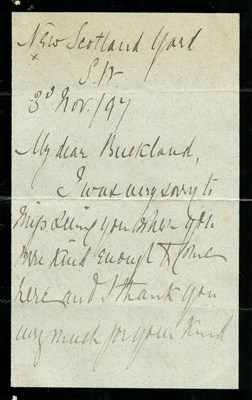 New Scotland Yard
S.W.
3d Nov. 197
My dear Buckland,
I was very sorry to
miss seeing you when you
were kind enough to come
here and I thank you
very much for your kind